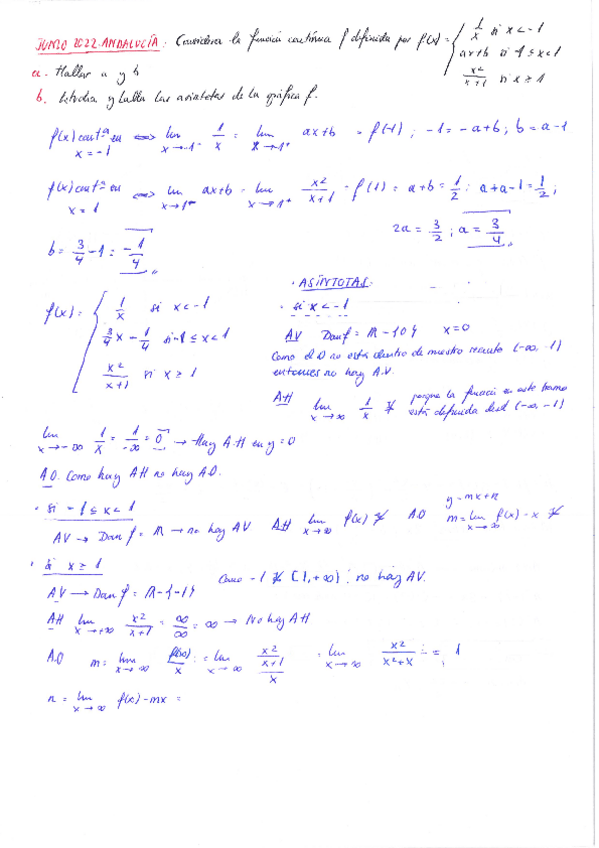 JUNIO 2022. ANDALUCÍA: Considera la función continua f definida por f(x) = { 1/x si x < -1
ax+b si -1 ≤ x < 1
x²/(x+1) si x ≥ 1
a. Hallar a y b
b. Estudia y halla las asíntotas de la gráfica f.
f(x) contª en x = -1 ⟺ lim x→-1⁻ 1/x = lim x→-1⁺ ax+b = f(-1) ; -1 = -a+b ; b = a-1
f(x) contª en x = 1 ⟺ lim x→1⁻ ax+b = lim x→1⁺ x²/(x+1) = f(1) = a+b = 1/2 ; a+a-1 = 1/2 ;
2a = 3/2 ; a = 3/4
b = 3/4 - 1 = -1/4
f(x) = { 1/x si x < -1
3/4 x - 1/4 si -1 ≤ x < 1
x²/(x+1) si x ≥ 1
· ASÍNTOTAS.
· si x < -1
AV Dom f = R - {0} x = 0
Como el 0 no está dentro de nuestro recinto (-∞, -1)
entonces no hay A.V.
AH lim x→∞ 1/x ∄ porque la función en este tramo
está definida (-∞, -1)
lim x→-∞ 1/x = 1/-∞ = 0 → Hay A.H en y = 0
A.O. Como hay AH no hay A.O.
· si -1 ≤ x < 1
AV → Dom f = R → no hay AV AH lim x→∞ f(x) ∄ A.O y = mx+n
m = lim x→∞ f(x) - x ∄
· si x ≥ 1
AV → Dom f = R - {-1} Como -1 ∉ [1, +∞) ; no hay AV.
AH lim x→+∞ x²/(x+1) = ∞/∞ = ∞ → No hay AH
A.O m = lim x→∞ f(x)/x = lim x→∞ (x²/(x+1))/x = lim x→∞ x²/(x²+x) = 1
n = lim x→∞ f(x) - mx =